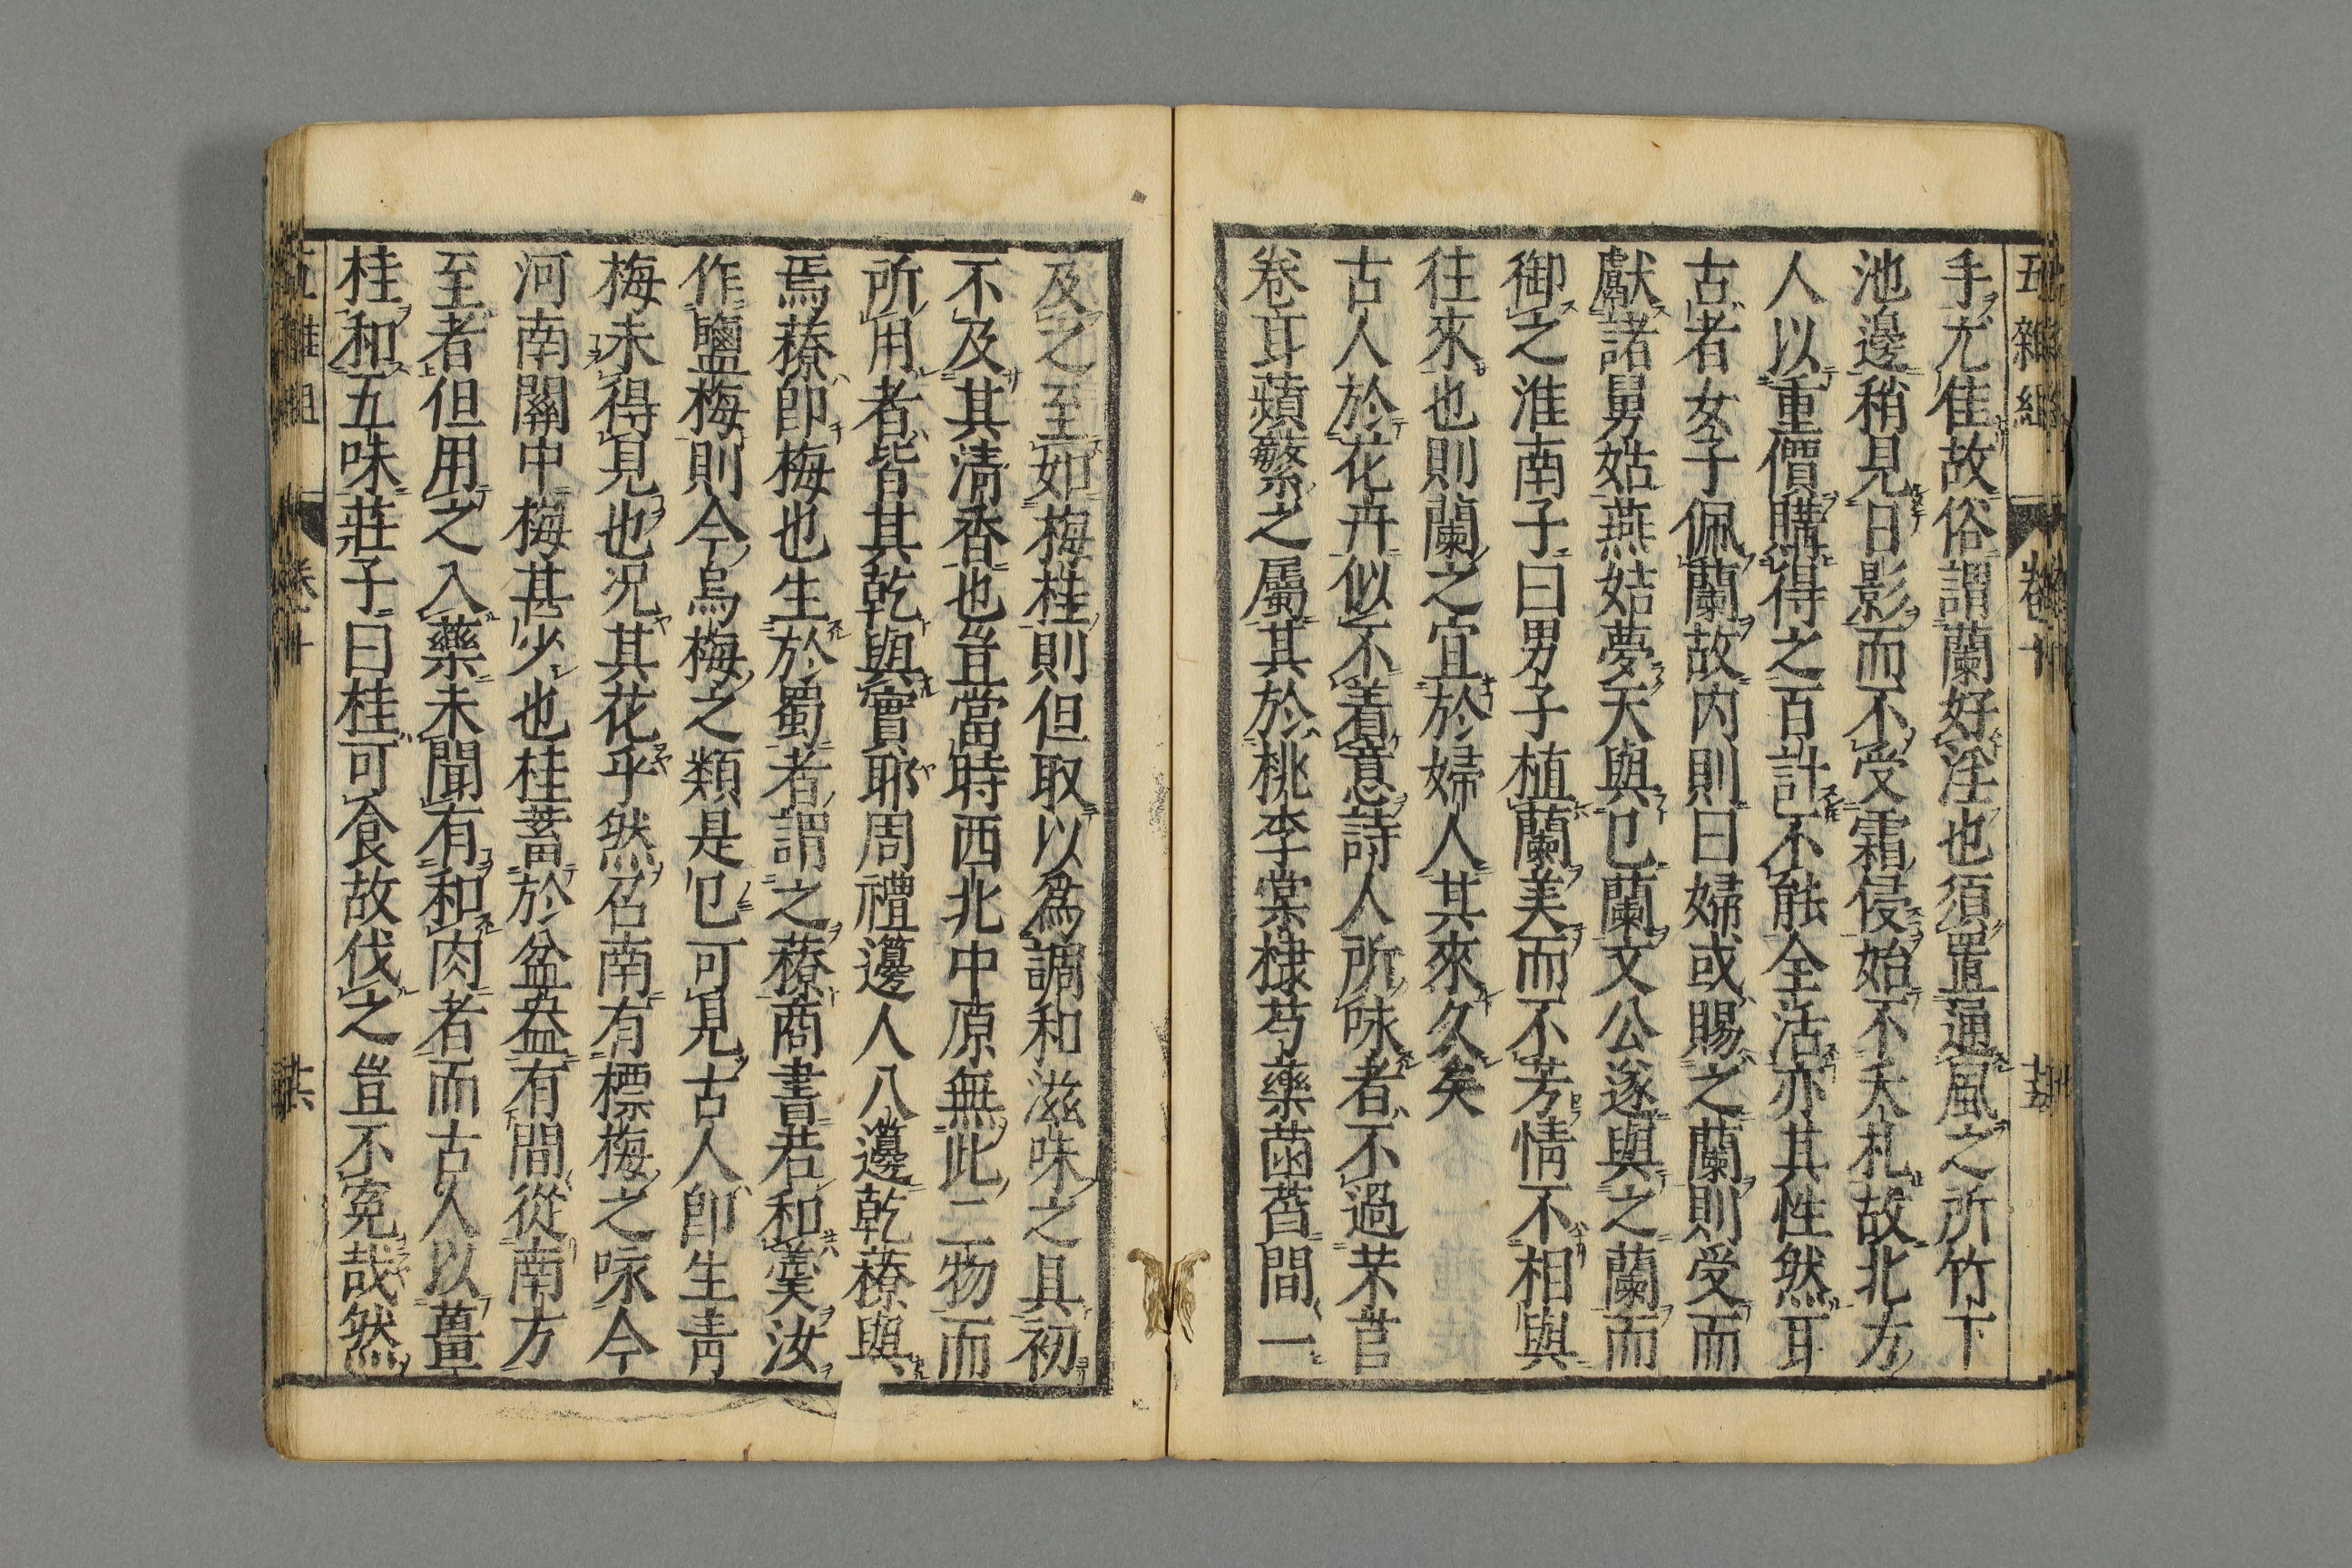 五雜組 卷十 十五
手尤佳故俗謂蘭好淫也須置通風之所竹下
池邊稍見日影而不受霜侵始不夭札故北方
人以重價購得之百計不能全活亦其性然耳
古者女子佩蘭故内則曰婦或賜之蘭則受而
獻諸舅姑燕姞夢天與已蘭文公遂與之蘭而
御之淮南子曰男子植蘭美而不芳情不相與
往來也則蘭之宜於婦人其來久矣
古人於花卉似不着意詩人所味者不過苤苢
卷耳蘋蘩之屬其於桃李棠棣芍藥菡萏間一
及之至如梅桂則但取以爲調和滋味之具初
不及其清香也豈當時西北中原無此二物而
所用者皆其乾與實耶周禮籩人八籩乾䕩與
焉䕩卽梅也生於蜀者謂之䕩商書若和羹汝
作鹽梅則今烏梅之類是已可見古人卽生青
梅未得見也况其花乎然召南有摽梅之咏今
河南關中梅甚少也桂蓄於盆盎有間從南方
至者但用之入藥未聞有和肉者而古人以薑
桂和五味莊子曰桂可食故伐之豈不寃哉然
五雜組 卷十 十六